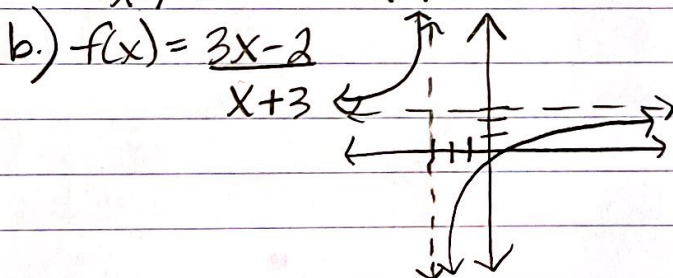 b.) f(x) = 3x-2
x+3